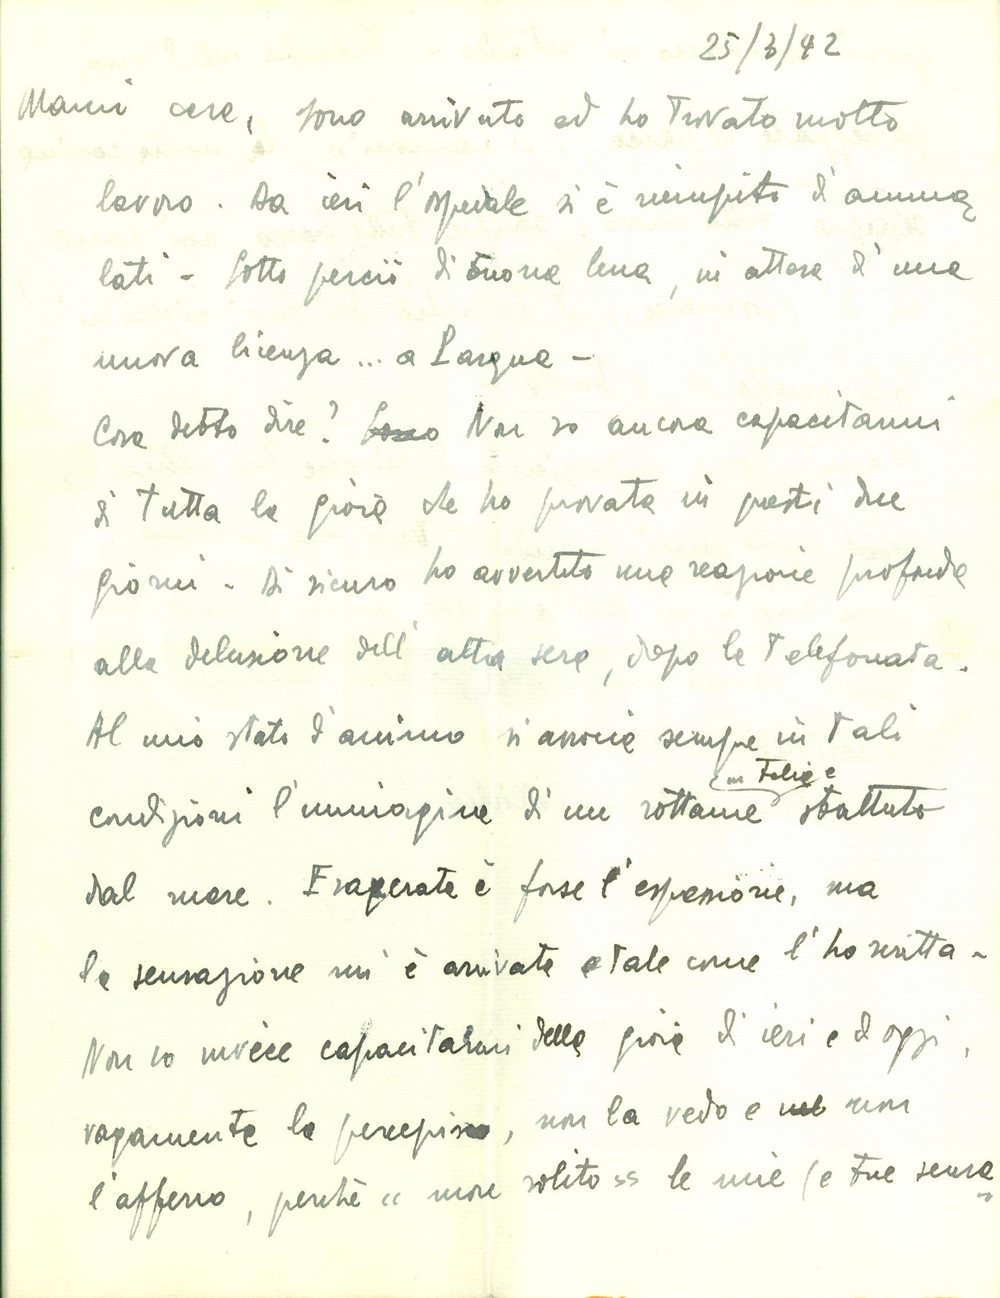 25/3/42
Mami cara, sono arrivato ed ho trovato molto
lavoro. Da ieri l'ospedale si è riempito d'amma
lati - Sotto perciò di buona lena, in attesa d'una
nuova licenza ... a Pasqua -
Cosa debbo dire? Non so ancora capacitarmi
di tutta la gioia che ho provata in questi due
giorni - Di sicuro ho avvertito una reazione profonda
alla delusione dell'altra sera, dopo la telefonata.
Al mio stato d'animo si associa sempre in tali
condizioni l'immagine di un rottame sbattuto
dal mare. Esagerata è forse l'espressione, ma
la sensazione mi è arrivata tale come l'ho scritta -
Non so invece capacitarmi della gioia di ieri e d'oggi,
vagamente la percepisco, non la vedo e non
l'afferro, perchè "more solito" le mie (e tue sensa